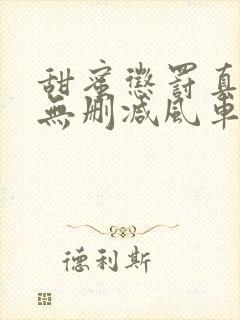 甜蜜懲罰真
無刪減風車
德利斯